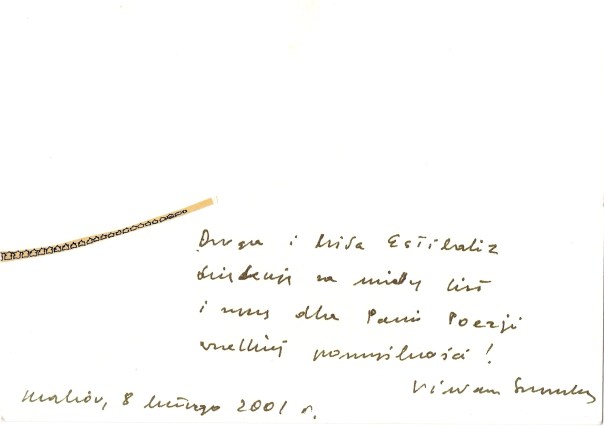 Droga i miła Estibaliz
dziękuję za miły list
i dla Pani Poezji
wszelkiej pomyślności!
Wisława Szymborska
Kraków, 8 lutego 2001 r.